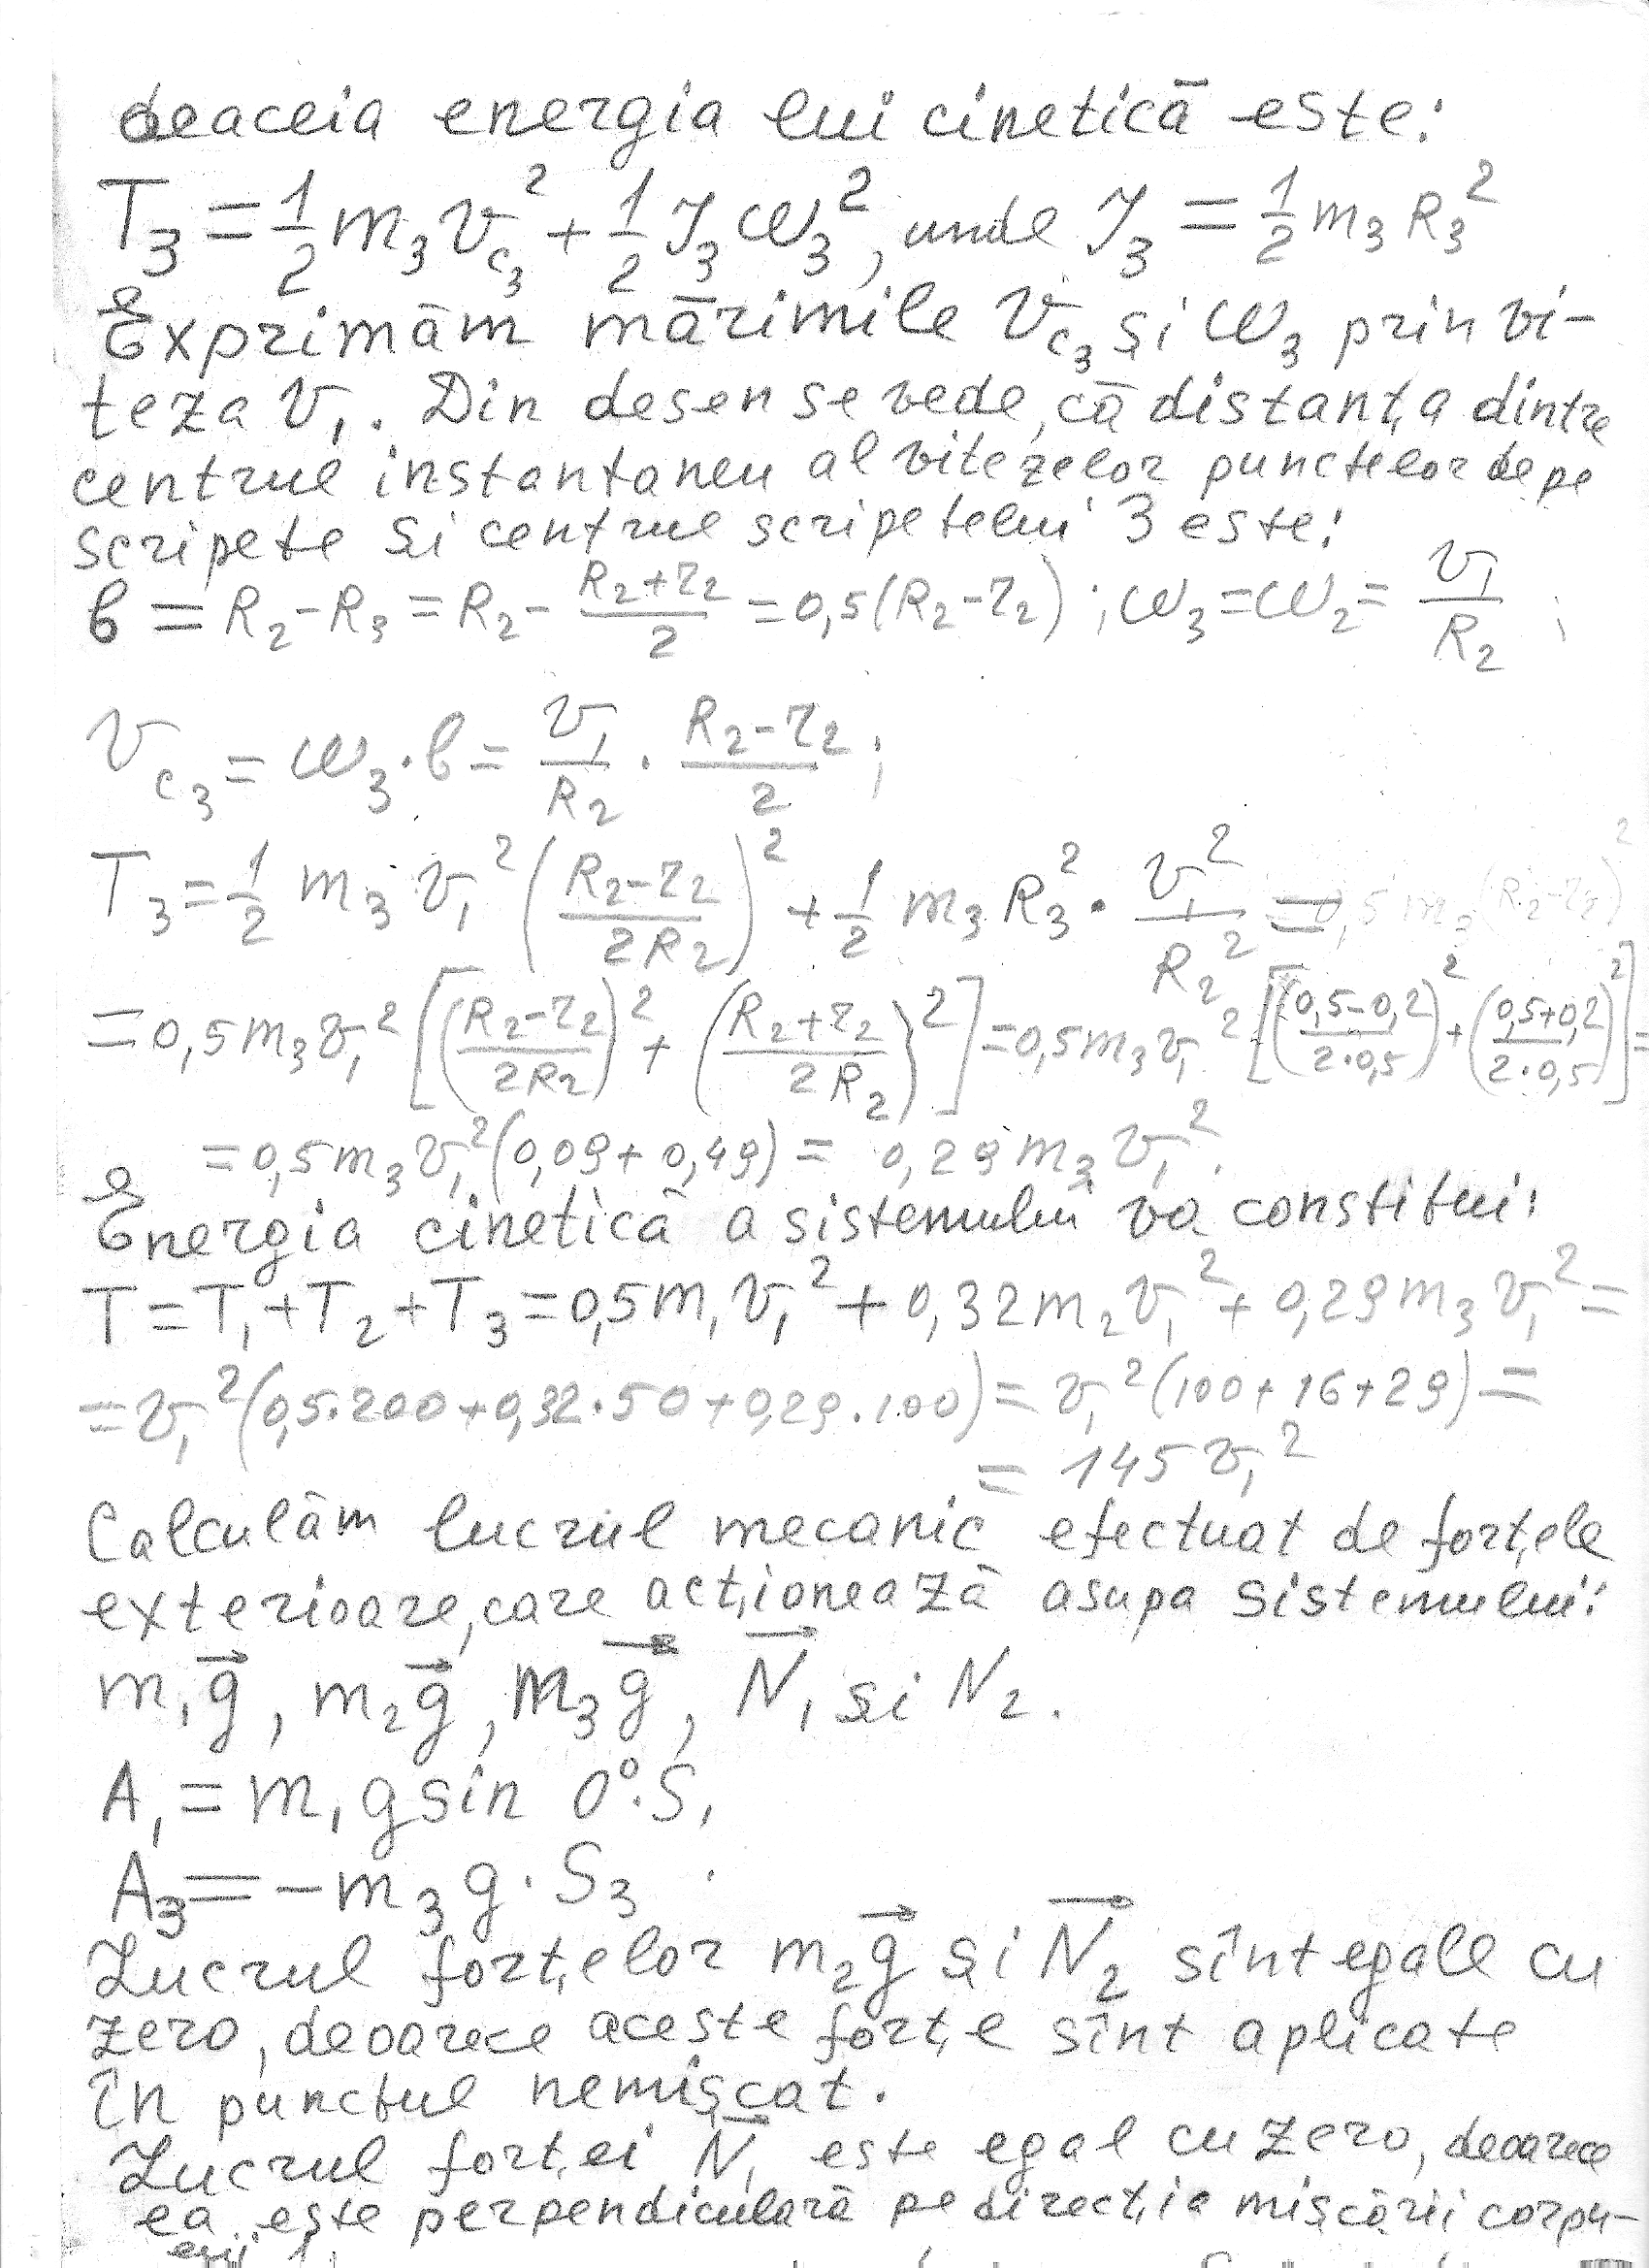 deaceia energia lui cinetică este:
T₃ = 1/2 m₃ v_c₃² + 1/2 J₃ ω₃², unde J₃ = 1/2 m₃ R₃²
Exprimăm mărimile v_c₃ și ω₃ prin vi-
teza v₁. Din desen se vede, că distanța dintre
centrul instantaneu al vitezelor punctelor de pe
scripete și centrul scripetelui 3 este:
b = R₂ - R₃ = R₂ - (R₂ + r₂)/2 = 0,5(R₂ - r₂); ω₃ = ω₂ = v₁/R₂;
v_c₃ = ω₃ · b = v₁/R₂ · (R₂ - r₂)/2;
T₃ = 1/2 m₃ v₁² ((R₂ - r₂)/(2R₂))² + 1/2 m₃ R₃² · v₁²/R₂² = 0,5 m₃ (R₂ - r₂)²
= 0,5 m₃ v₁² [((R₂ - r₂)/(2R₂))² + ((R₂ + r₂)/(2R₂))²] = 0,5 m₃ v₁² [((0,5 - 0,2)/(2·0,5))² + ((0,5 + 0,2)/(2·0,5))²] =
= 0,5 m₃ v₁² (0,09 + 0,49) = 0,29 m₃ v₁².
Energia cinetică a sistemului va constitui:
T = T₁ + T₂ + T₃ = 0,5 m₁ v₁² + 0,32 m₂ v₁² + 0,29 m₃ v₁² =
= v₁² (0,5·200 + 0,32·50 + 0,29·100) = v₁² (100 + 16 + 29) =
= 145 v₁²
Calculăm lucrul mecanic efectuat de forțele
exterioare, care acționează asupa sistemului:
m₁g⃗, m₂g⃗, m₃g⃗, N⃗₁ și N₂.
A₁ = m₁ g sin 0° · S₁
A₃ = -m₃ g · S₃
Lucrul forțelor m₂g⃗ și N⃗₂ sînt egale cu
zero, deoarece aceste forțe sînt aplicate
în punctul nemișcat.
Lucrul forței N⃗₁ este egal cu zero, deoarece
ea este perpendiculară pe direcția mișcării corpu-